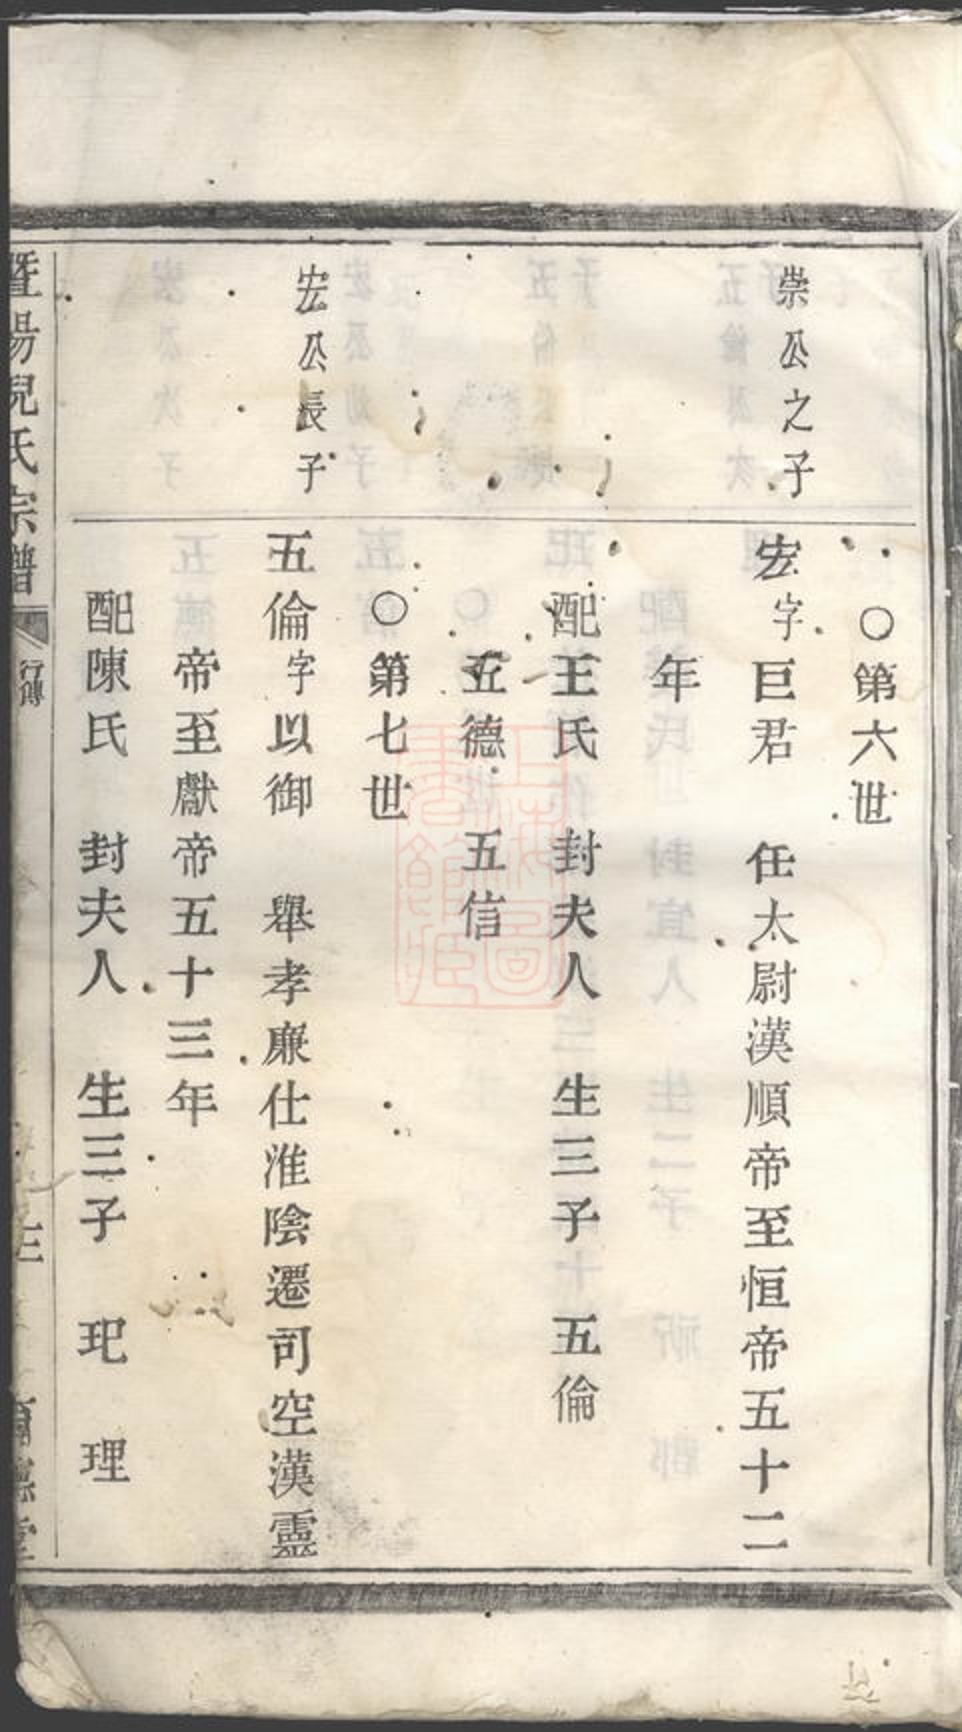 ○第六世
崇公之子
宏字巨君 任太尉漢順帝至恒帝五十二
年
配王氏 封夫人 生三子 五倫
五德 五信
○第七世
宏公長子
五倫字以御 舉孝廉仕淮陰遷司空漢靈
帝至獻帝五十三年
配陳氏 封夫人 生三子 玘 理
暨陽倪氏宗譜
行傳
三
上海圖書館藏